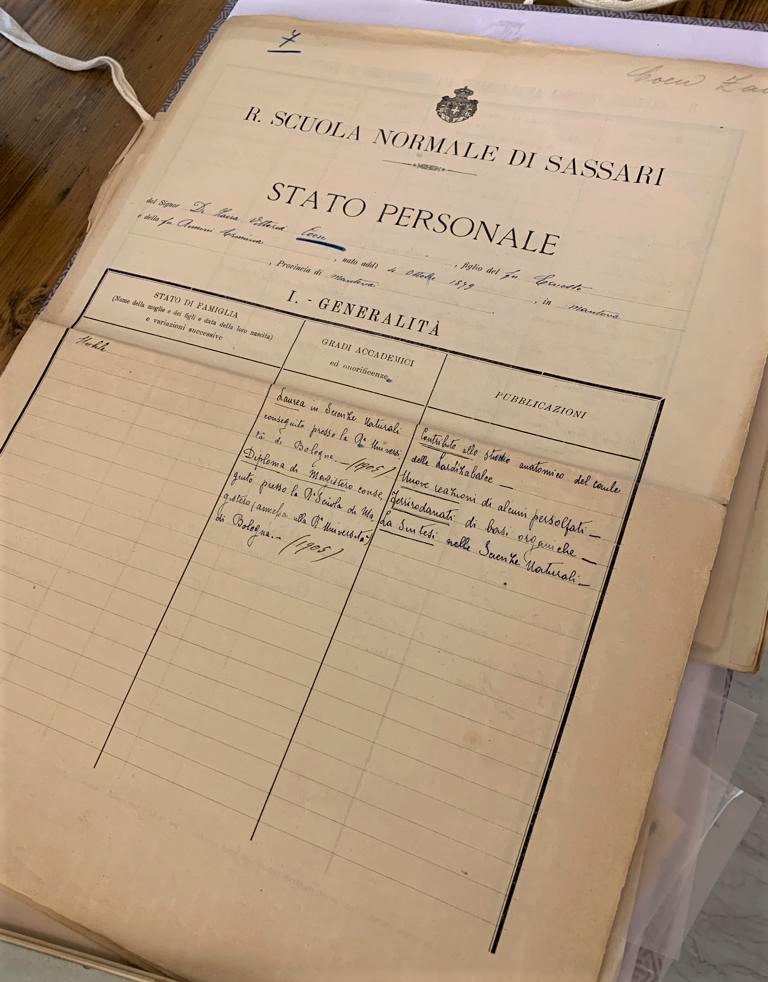 7
Coen
R. SCUOLA NORMALE DI SASSARI
STATO PERSONALE
del Signor Vittoria Coen, figlio del fu Ernesto
e della fu Erminia, nato addì 4 Ottobre 1879, in Mantova
, Provincia di Mantova
I. - GENERALITÀ
STATO DI FAMIGLIA
(Nome della moglie e dei figli e data della loro nascita)
e variazioni successive
GRADI ACCADEMICI
ed onorificenze
PUBBLICAZIONI
Nubile
Laurea in Scienze Naturali
conseguita presso la Rª Universi
tà di Bologna. — (1905)
Diploma di Magistero conse
guito presso la Rª Scuola di Ma
gistero, annessa alla Rª Università
di Bologna. — (1905)
Contributo allo studio anatomico del caule
delle Lardizabalee —
Nuove reazioni di alcuni persolfati —
Ferrirodanati di basi organiche —
La Sintesi nelle Scienze Naturali —